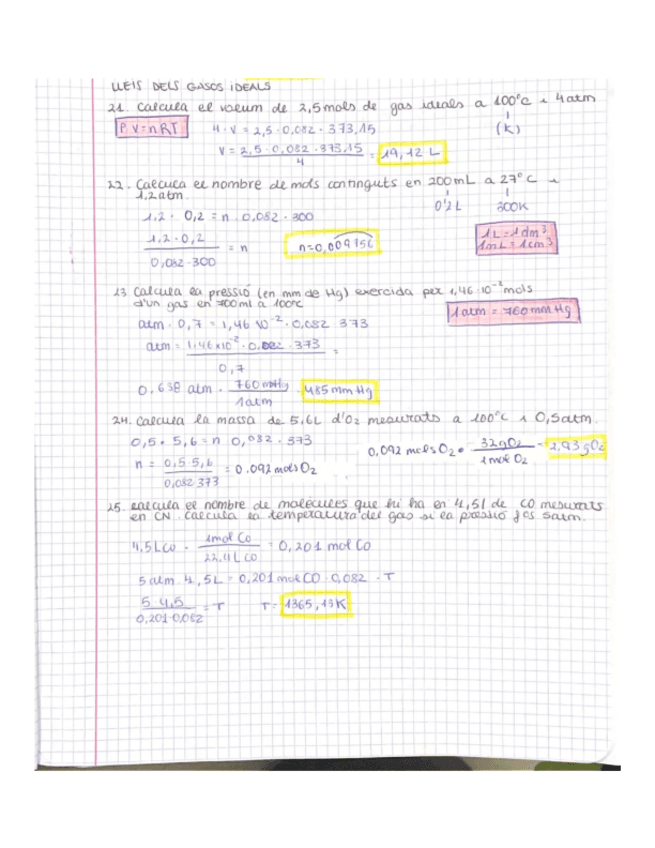 LLEIS DELS GASOS IDEALS
21. Calcula el volum de 2,5 mols de gas ideals a 100°C i 4 atm
P.V=nRT 4·V = 2,5·0,082·373,15 (K)
V = 2,5·0,082·373,15 / 4 = 19,12 L
22. Calcula el nombre de mols continguts en 200mL a 27°C i
1,2 atm. 0'2 L 300K
1,2· 0,2 = n 0,082·300
1,2·0,2 / 0,082·300 = n n=0,009756
1L=1dm³
1mL=1cm³
23 Calcula la pressió (en mm de Hg) exercida per 1,46·10⁻² mols
d'un gas en 700ml a 100°C
1 atm = 760 mm Hg
atm · 0,7 = 1,46 10⁻² · 0,082 373
atm = 1,46×10⁻² · 0,082 · 373 / 0,7 =
0,638 atm · 760 mmHg / 1 atm = 485 mm Hg
24. Calcula la massa de 5,6L d'O₂ mesurats a 100°C i 0,5 atm.
0,5 · 5,6 = n 0,082 · 373
n = 0,5 5,6 / 0,082 373 = 0.092 mols O₂
0,092 mols O₂ · 32g O₂ / 1 mol O₂ = 2,93 g O₂
25. Calcula el nombre de molècules que hi ha en 4,5l de CO mesurats
en CN. Calcula la temperatura del gas si la pressió fos 5 atm.
4,5L CO · 1mol CO / 22,4L CO = 0,201 mol CO
5 atm 4,5L = 0,201 mol CO · 0,082 · T
5 4,5 / 0,201·0,082 = T T = 1365,13 K